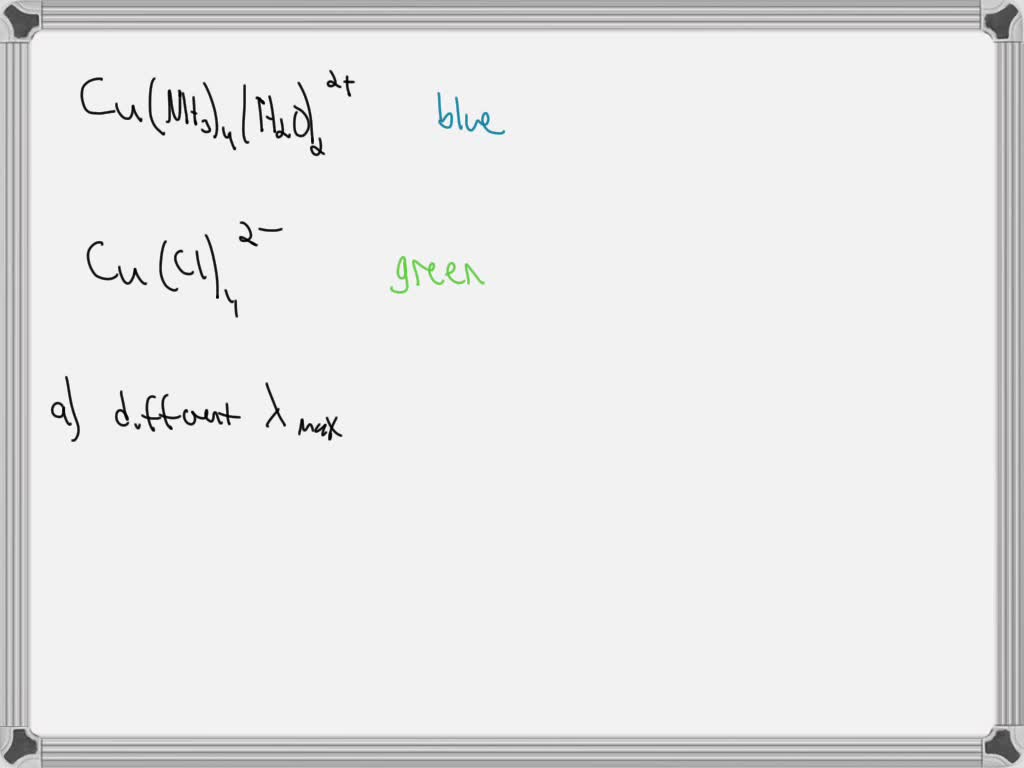 Cu(NH3)4(H2O)2 2+ blue
Cu(Cl)4 2- green
a) different λ max